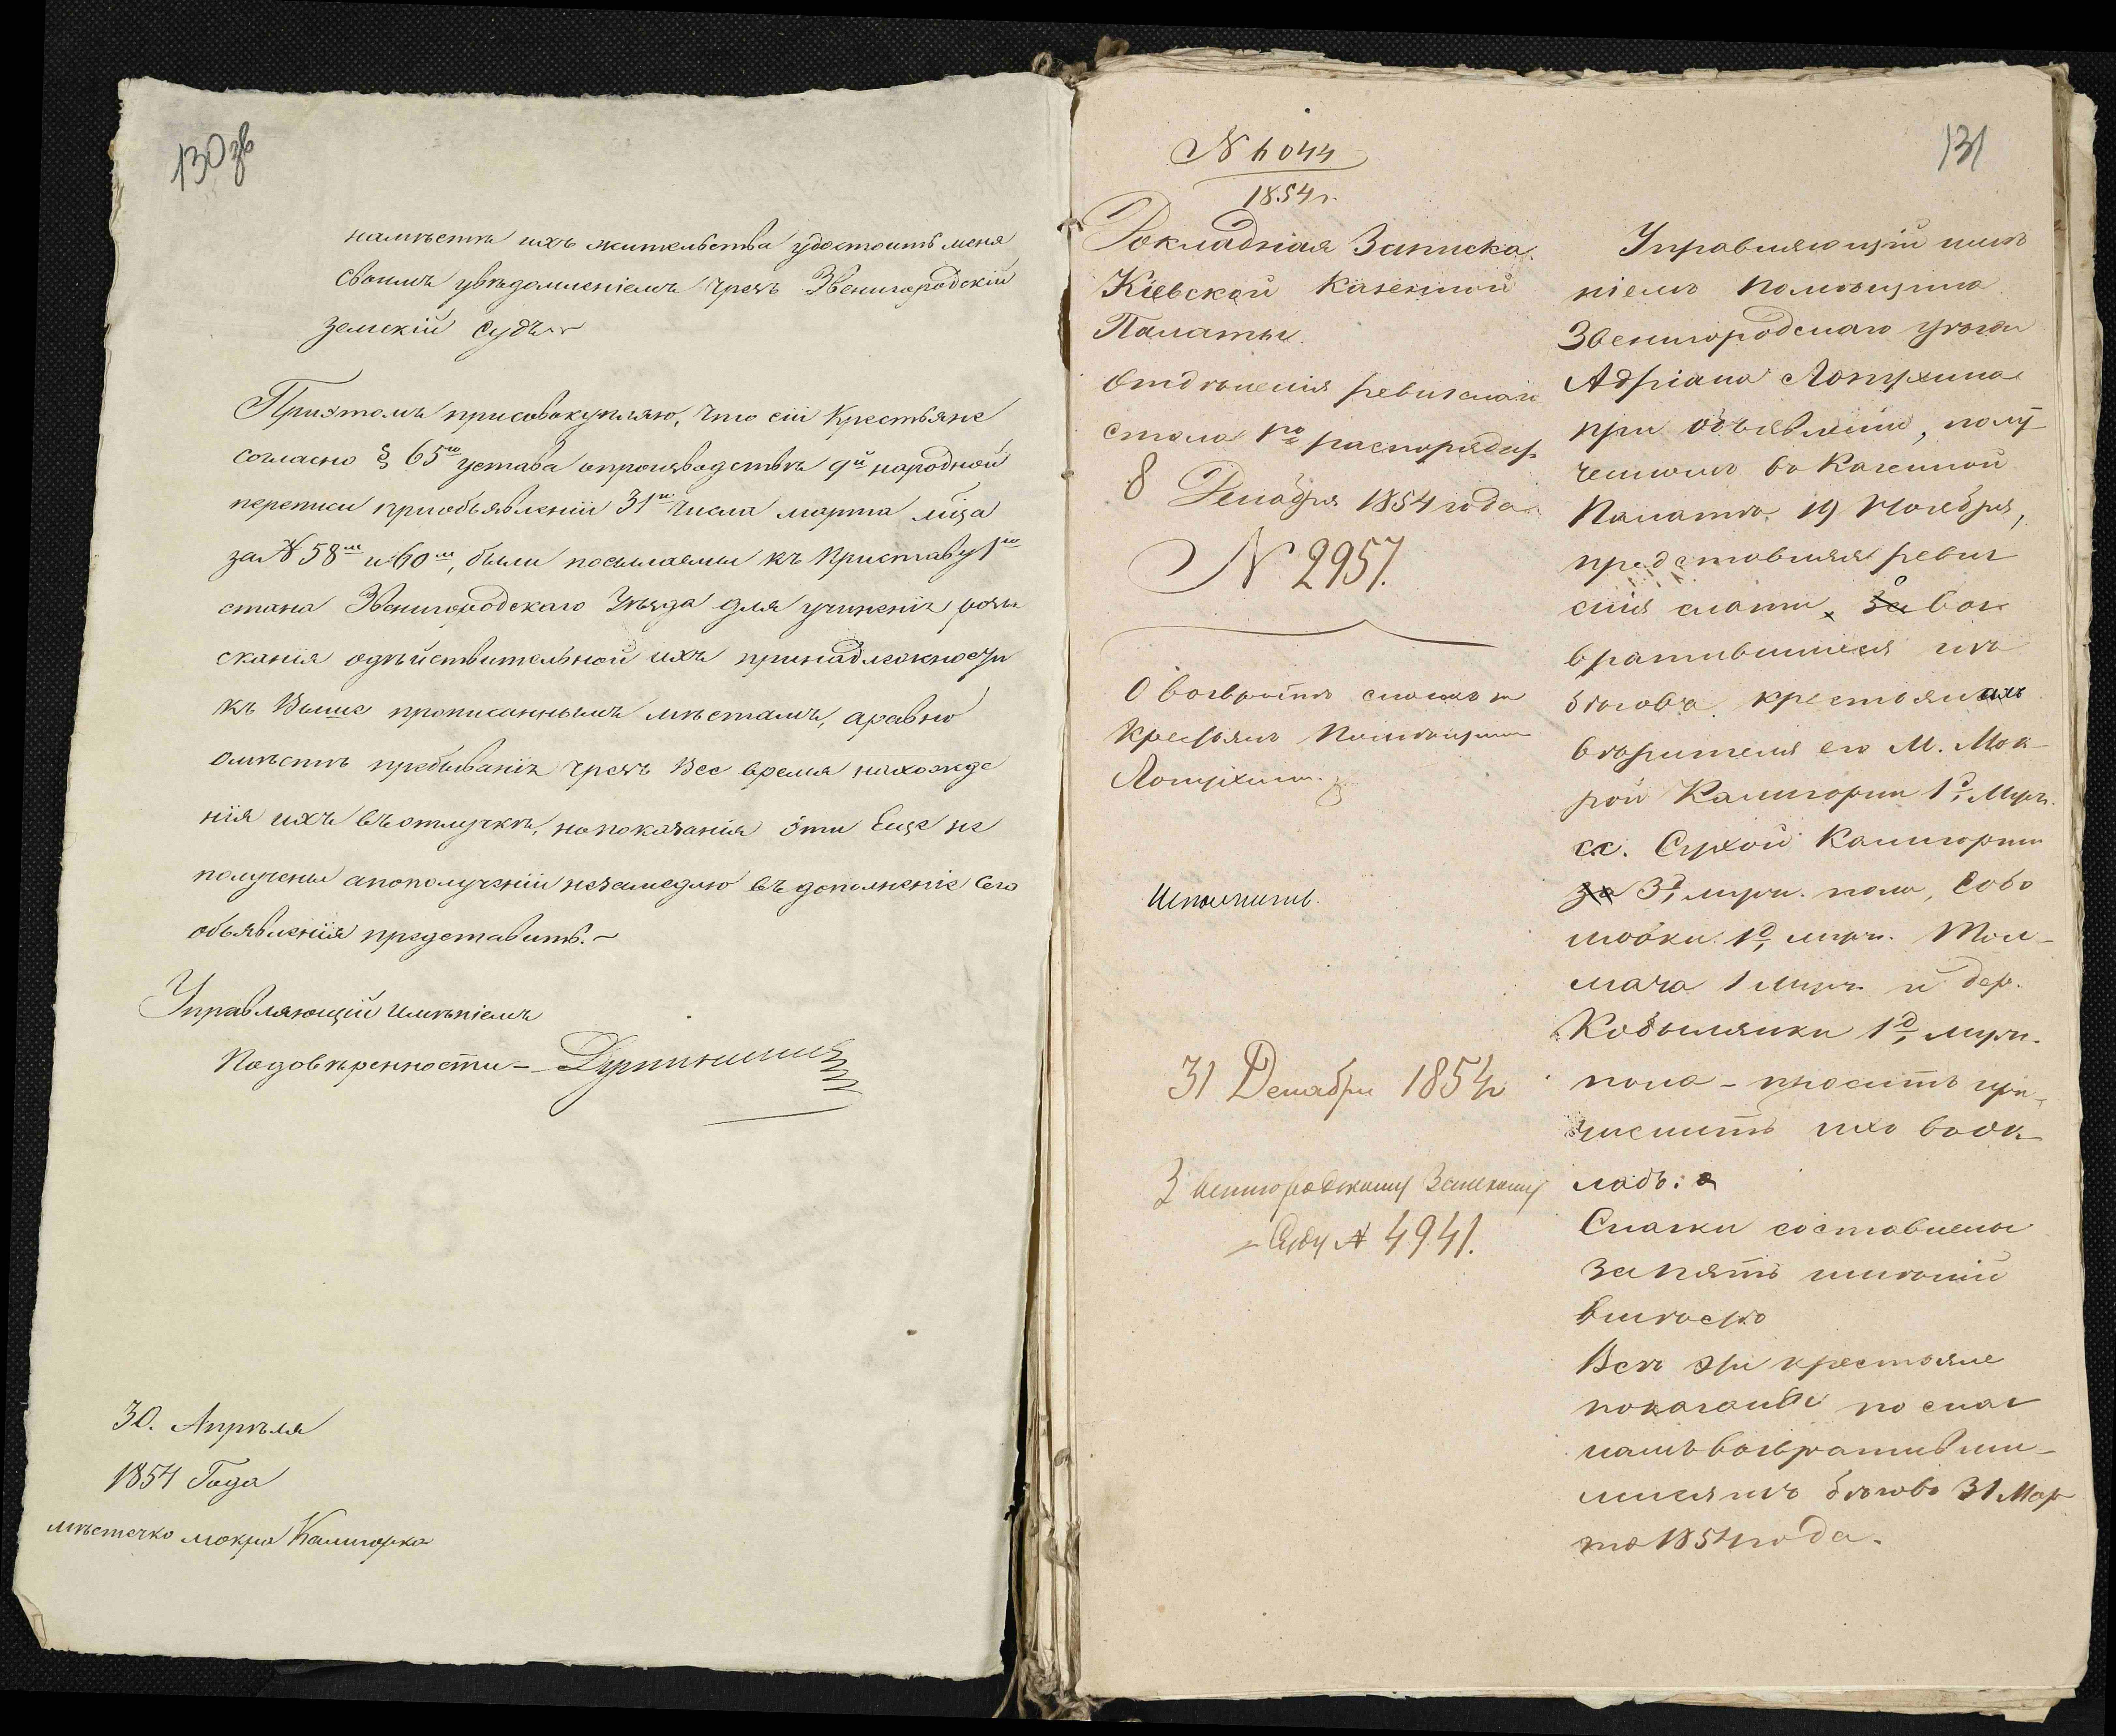 130 зв
намѣстѣ ихъ жительства удостоить меня
своимъ увѣдомленіемъ чрезъ Звенигородскій
земскій Судъ
Приэтомъ присовокупляю, что сіи Крестьяне
согласно § 65го устава опроизводствѣ 9й народной
переписи приобъявленіи 31го числа марта мѣца
за № 58м и 60м, были посылаемы къ Приставу 1го
стана Звенигородскаго Уѣзда для учиненія розы
сканія одѣйствительной ихъ принадлежности
къ Выше прописаннымъ мѣстамъ, аравно
омѣстѣ пребыванія чрезъ Все время нахожде
нія ихъ въотлучкѣ, нопоказанія эти Еще не
получены апополученіи незамедлю въ дополненіе Сего
объявленія представить.~
Управляющій имѣніемъ
Подовѣренности-
30. Апрѣля
1854 Года
мѣстечко мокра Калигорка
№ 6044
1854 г.
Докладная Записка
Кіевской Казенной
Палаты
Отдѣленія ревизскаго
стола 1го распорядит.
8 Декабря 1854 года
№ 2957.
О возвратѣ сказокъ на
Крестьянъ Помѣщика
Лопухина.
Исполнить.
31 Декабря 1854 г
Звенигородскому Земскому
Суду № 4941.
131
Управляющій имѣ
ніемъ Помѣщика
Звенигородскаго уѣзда
Адріана Лопухина
при объявленіи, полу
ченномъ въ Казенной
Палатѣ 19 Ноября,
представляя ревиз
скія сказки, о воз
вратившихся изъ
бѣговъ крестьянахъ
вѣрителя его М. Мок-
рой Калигорки 1й Муж.
сс. Сухой Калигорки
3и муж. пола, Собо
ловки 1й муж. Тол-
мача 1 муж. и дер.
Кобылянки 1й муж.
пола - проситъ при-
числить ихъ въ ок
ладъ:
Сказки составлены
за пять имѣній
вмѣстѣ
Всѣ эти крестьяне
показаны по сказ
камъ возвративши-
мися изъ бѣговъ 31 Мар
та 1854 года.